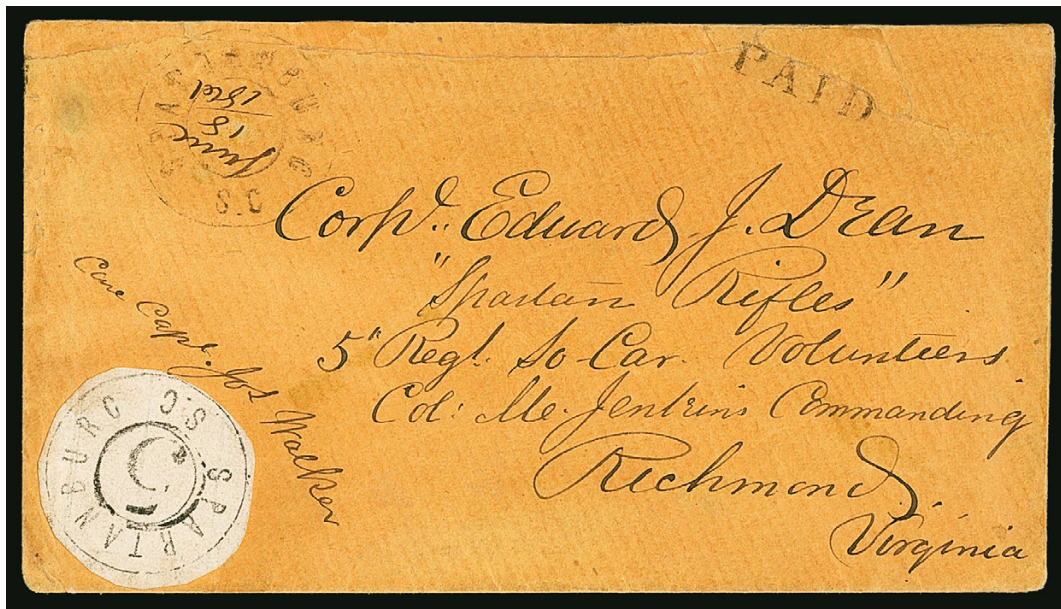 SPARTANBURG S.C
June
18
1861
PAID
Corpl. Edward J. Dean
"Spartan Rifles"
5" Regt. So-Car. Volunteers
Col: M. Jenkins Commanding
Richmond.
Virginia
Care Capt. Jos Walker
SPARTANBURG S.C.
5